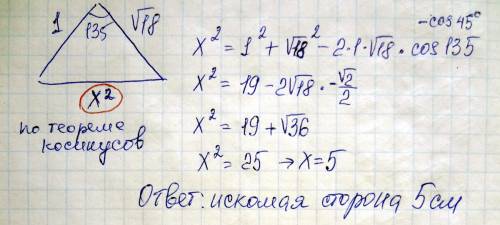 1 135 √18
x²
по теореме
косинусов
-cos45°
x² = 1² + √18² - 2·1·√18 · cos135
x² = 19 - 2√18 · -√2/2
x² = 19 + √36
x² = 25 → x=5
Ответ: искомая сторона 5см